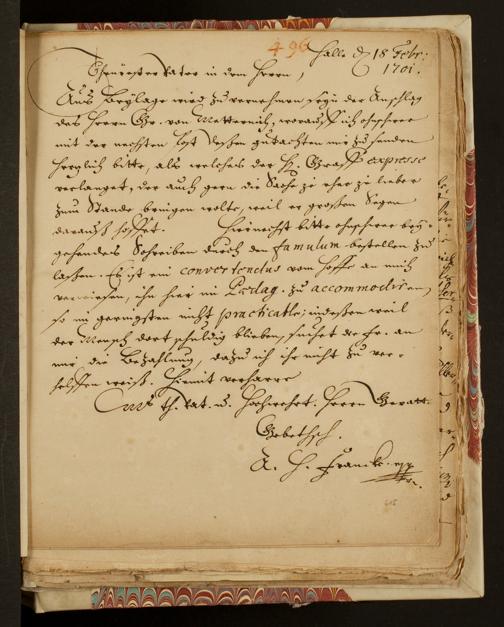 496
Halle d 18 Febr.
1701.
Ehrwürdester Vater in dem Herrn,
Aus Beylage wird zu vernehmen seyn der Anschlag
des Herrn Gr. von Metternich, worauf ich
mit der nechsten Post dessen gutachten mir zu senden
herzlich bitte, als welches der H. Graff expresse
verlanget, der auch gern die Sache je eher je lieber
zum Stande bringen wolte, weil er großen Segen
darauß hoffet. Hiernechst bitte bey-
gehendes Schreiben durch den famulum bestellen zu
laßen. Es ist ein convertendus von Hoffe an mich
verwiesen, ihn hier im Pædag. zu accommodiren,
so im geringsten nicht practicable; indeßen weil
der Mensch dort schuldig blieben, suchet der Hr. an
mir die Bezahlung, dazu ich ihr nicht zu ver-
helffen weiß. Hiemit verharre
th. Vat. u. Hochgeehrt. Herrn Gevatt.
Gebethsch.
A. H. Francke